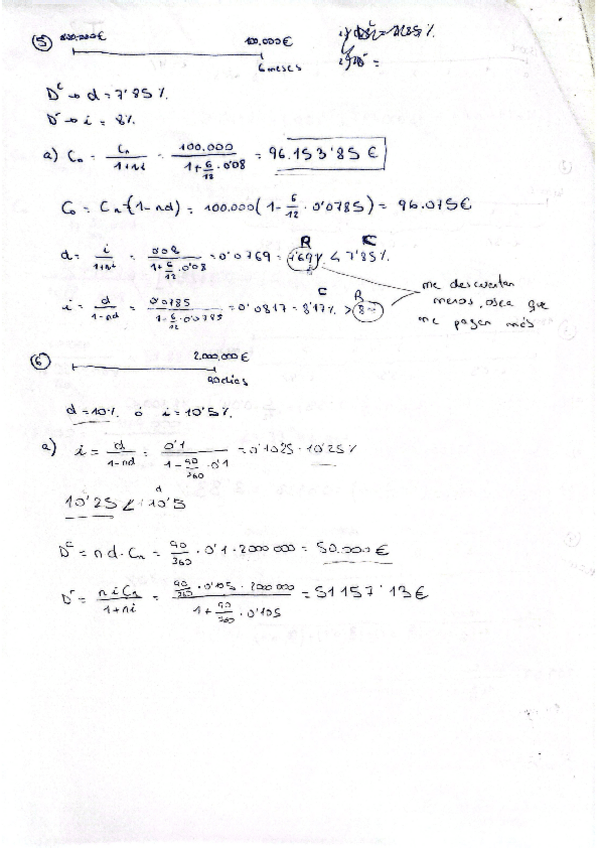 ⑤ 100.000€
6 meses
Dᶜ → d = 7'85%
Dʳ → i = 8%
a) C₀ = Cₙ/(1+ni) = 100.000/(1+6/12·0'08) = 96.153'85 €
C₀ = Cₙ(1-nd) = 100.000(1-6/12·0'0785) = 96.075€
R C
d = i/(1+ni) = 0'08/(1+6/12·0'08) = 0'0769 = 7'69% < 7'85%
C R
i = d/(1-nd) = 0'0785/(1-6/12·0'0785) = 0'0817 = 8'17% > 8%
me descuentan
menos, osea que
me pagan más
⑥ 2.000.000€
90 dias
d = 10% ó i = 10'5%
a) i = d/(1-nd) = 0'1/(1-90/360·0'1) = 0'1025 · 10'25%
10'25 < 10'5
Dᶜ = nd·Cₙ = 90/360 · 0'1 · 2000000 = 50.000€
Dʳ = niCₙ/(1+ni) = (90/360 · 0'105 · 2000000)/(1+90/360·0'105) = 51157'13€